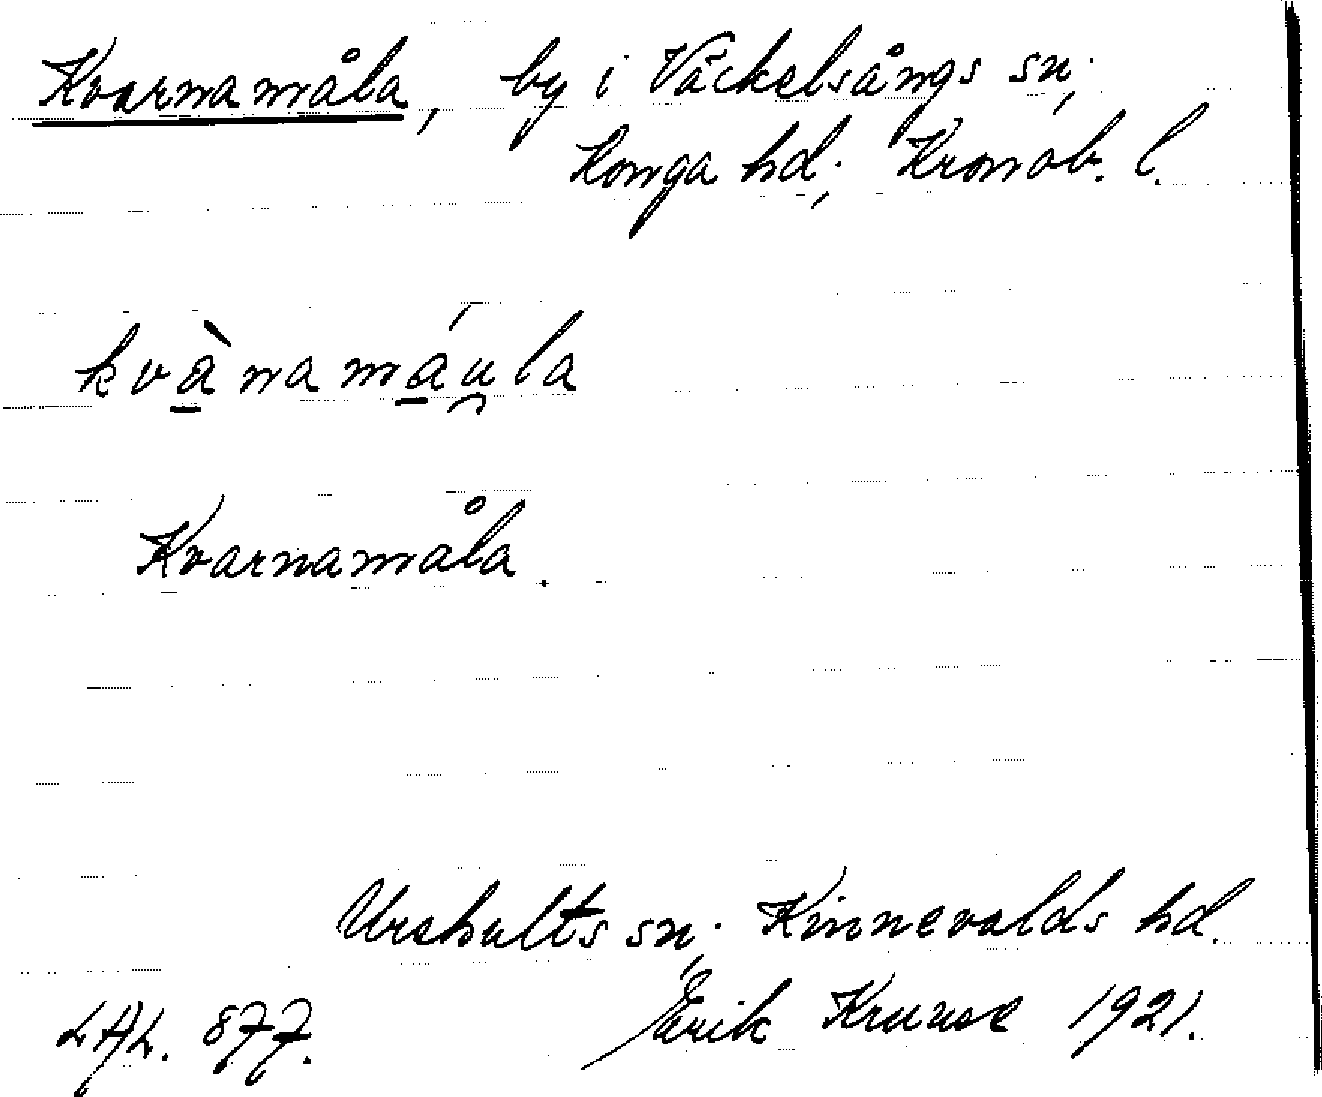 Kvarnamåla, by i Väckelsångs sn;
Konga hd; Kronob. l.
kvànamáu̯la
Kvarnamåla.
Urshults sn; Kinnevalds hd.
LAL. 877. Erik Kruuse 1921.